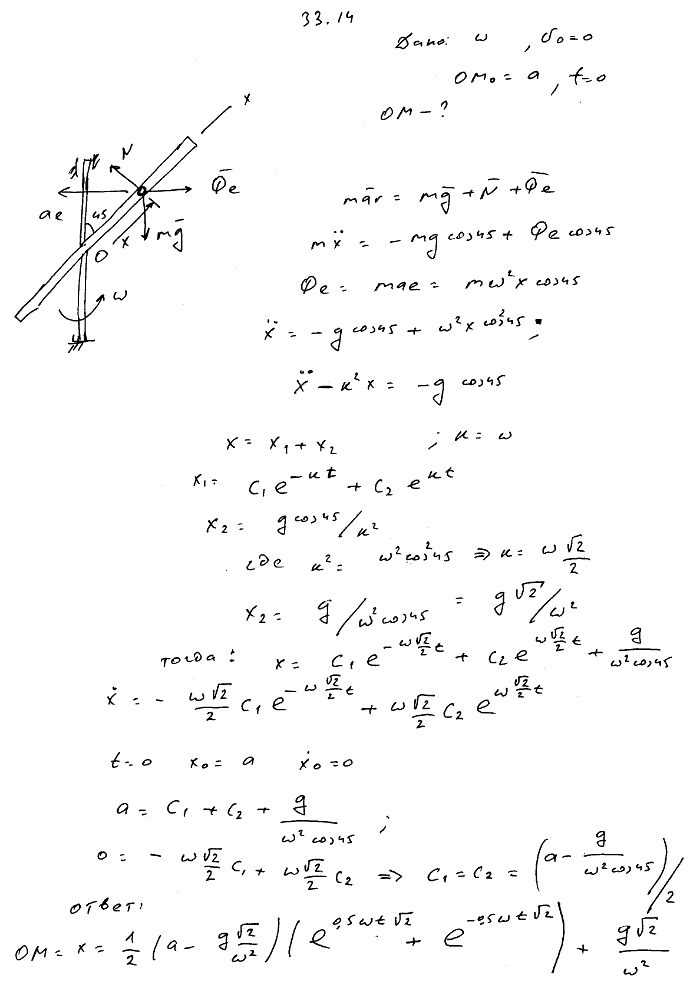 33.14
Дано: ω , v₀=0
OM₀ = a , t=0
OM – ?
x
N
Φ̄e
ae
45
x
mḡ
O
ω
mār = mḡ + N̄ + Φ̄e
mẍ = -mg cos45 + Φe cos45
Φe = mae = mω²x cos45
ẍ = -g cos45 + ω²x cos²45 ;
ẍ - к²x = -g cos45
x = x₁ + x₂ ; к = ω
x₁ = C₁e^(-кt) + C₂ e^(кt)
x₂ = g cos45/к²
где к² = ω²cos²45 ⇒ к = ω √2/2
x₂ = g/ω²cos45 = g√2/ω²
тогда: x = C₁e^(-ω√2/2 t) + C₂e^(ω√2/2 t) + g/ω²cos45
ẋ = - ω√2/2 C₁e^(-ω√2/2 t) + ω√2/2 C₂ e^(ω√2/2 t)
t=0 x₀ = a ẋ₀ = 0
a = C₁ + C₂ + g/ω²cos45 ;
0 = - ω√2/2 C₁ + ω√2/2 C₂ ⇒ C₁ = C₂ = (a - g/ω²cos45)/2
ответ:
OM = x = 1/2 (a - g√2/ω²)(e^(0,5ωt√2) + e^(-0,5ωt√2)) + g√2/ω²